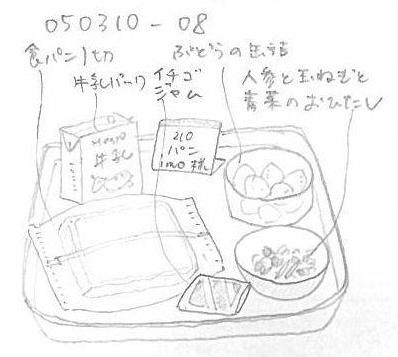 050310-08
食パン1切
牛乳パック
イチゴ
ジャム
ぶどうの缶詰
人参と玉ねぎと
青菜のおひたし
牛乳
210
パン